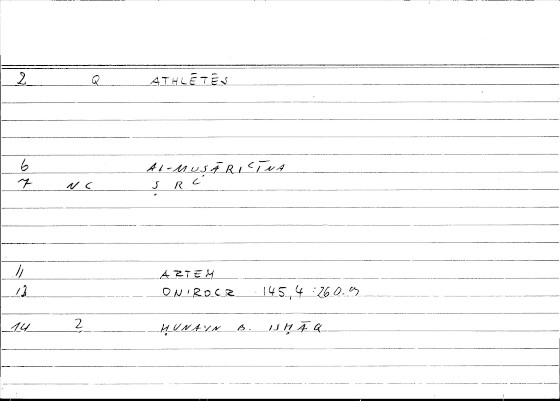 2 Q ATHLĒTĒS
6 AL-MUṢĀRIʿĪNA
7 NC Ṣ R ʿ
11 ARTEM
13 ONIROCR 145,4 :260.9
14 2 ḤUNAYN B. ISḤĀQ